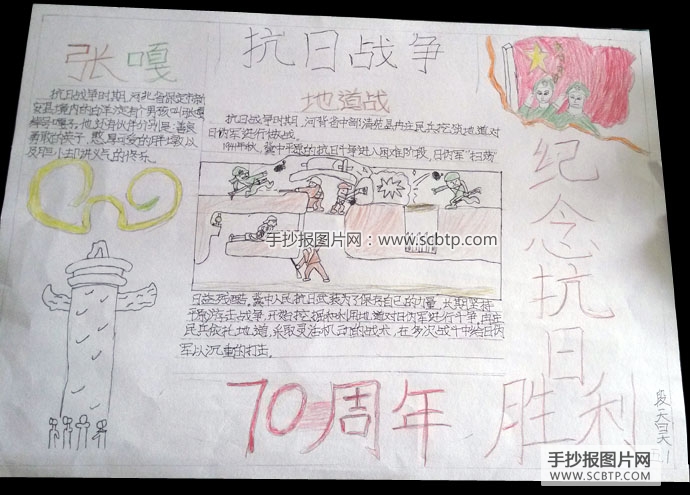 抗日战争
张嘎
抗日战争时期,河北省保定市
安县境内的白洋淀有个男孩叫张嘎
他还有伙伴分别是:善良
勇敢的英子,憨厚可爱的胖墩以
及胆小却讲义气的佟乐。
地道战
抗日战争时期,河北省中部清苑县冉庄民兵挖筑地道对
日伪军进行作战。
年秋,冀中平原的抗日斗争进入困难阶段,日伪军"扫荡
手抄报图片网:www.scbtp.com
日益残酷,冀中人民抗日武装为了保存自己的力量,长期坚持
平原游击战争,开始挖掘和利用地道对日伪军进行斗争,冉庄
民兵依托地道,采取灵活机动的战术,在多次战斗中给日伪
军以沉重的打击。
纪念抗日
70周年 胜利
手抄报图片网
WWW.SCBTP.COM